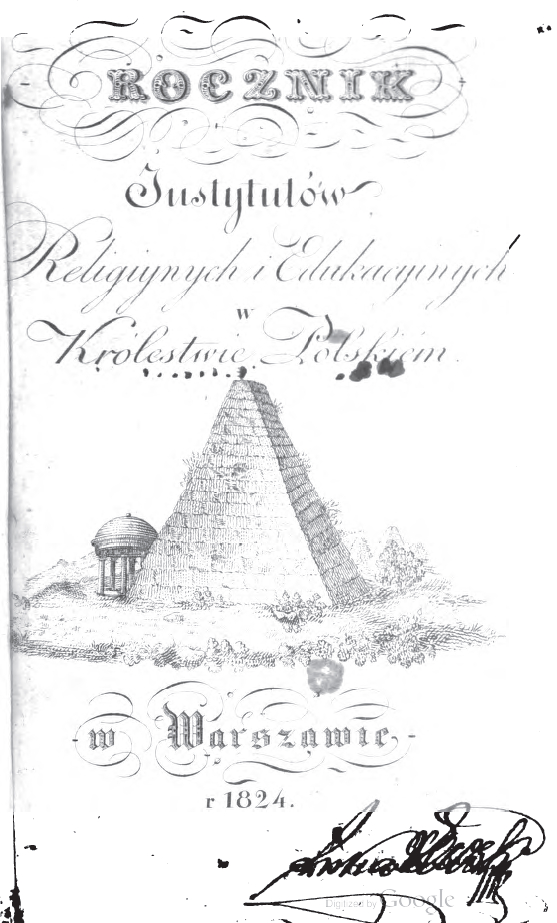 ROCZNIK
Instytutów
Religiynych i Edukacyinych
w
Królestwie Polskiém.
w Warszawie
r 1824.
Digitized by Google